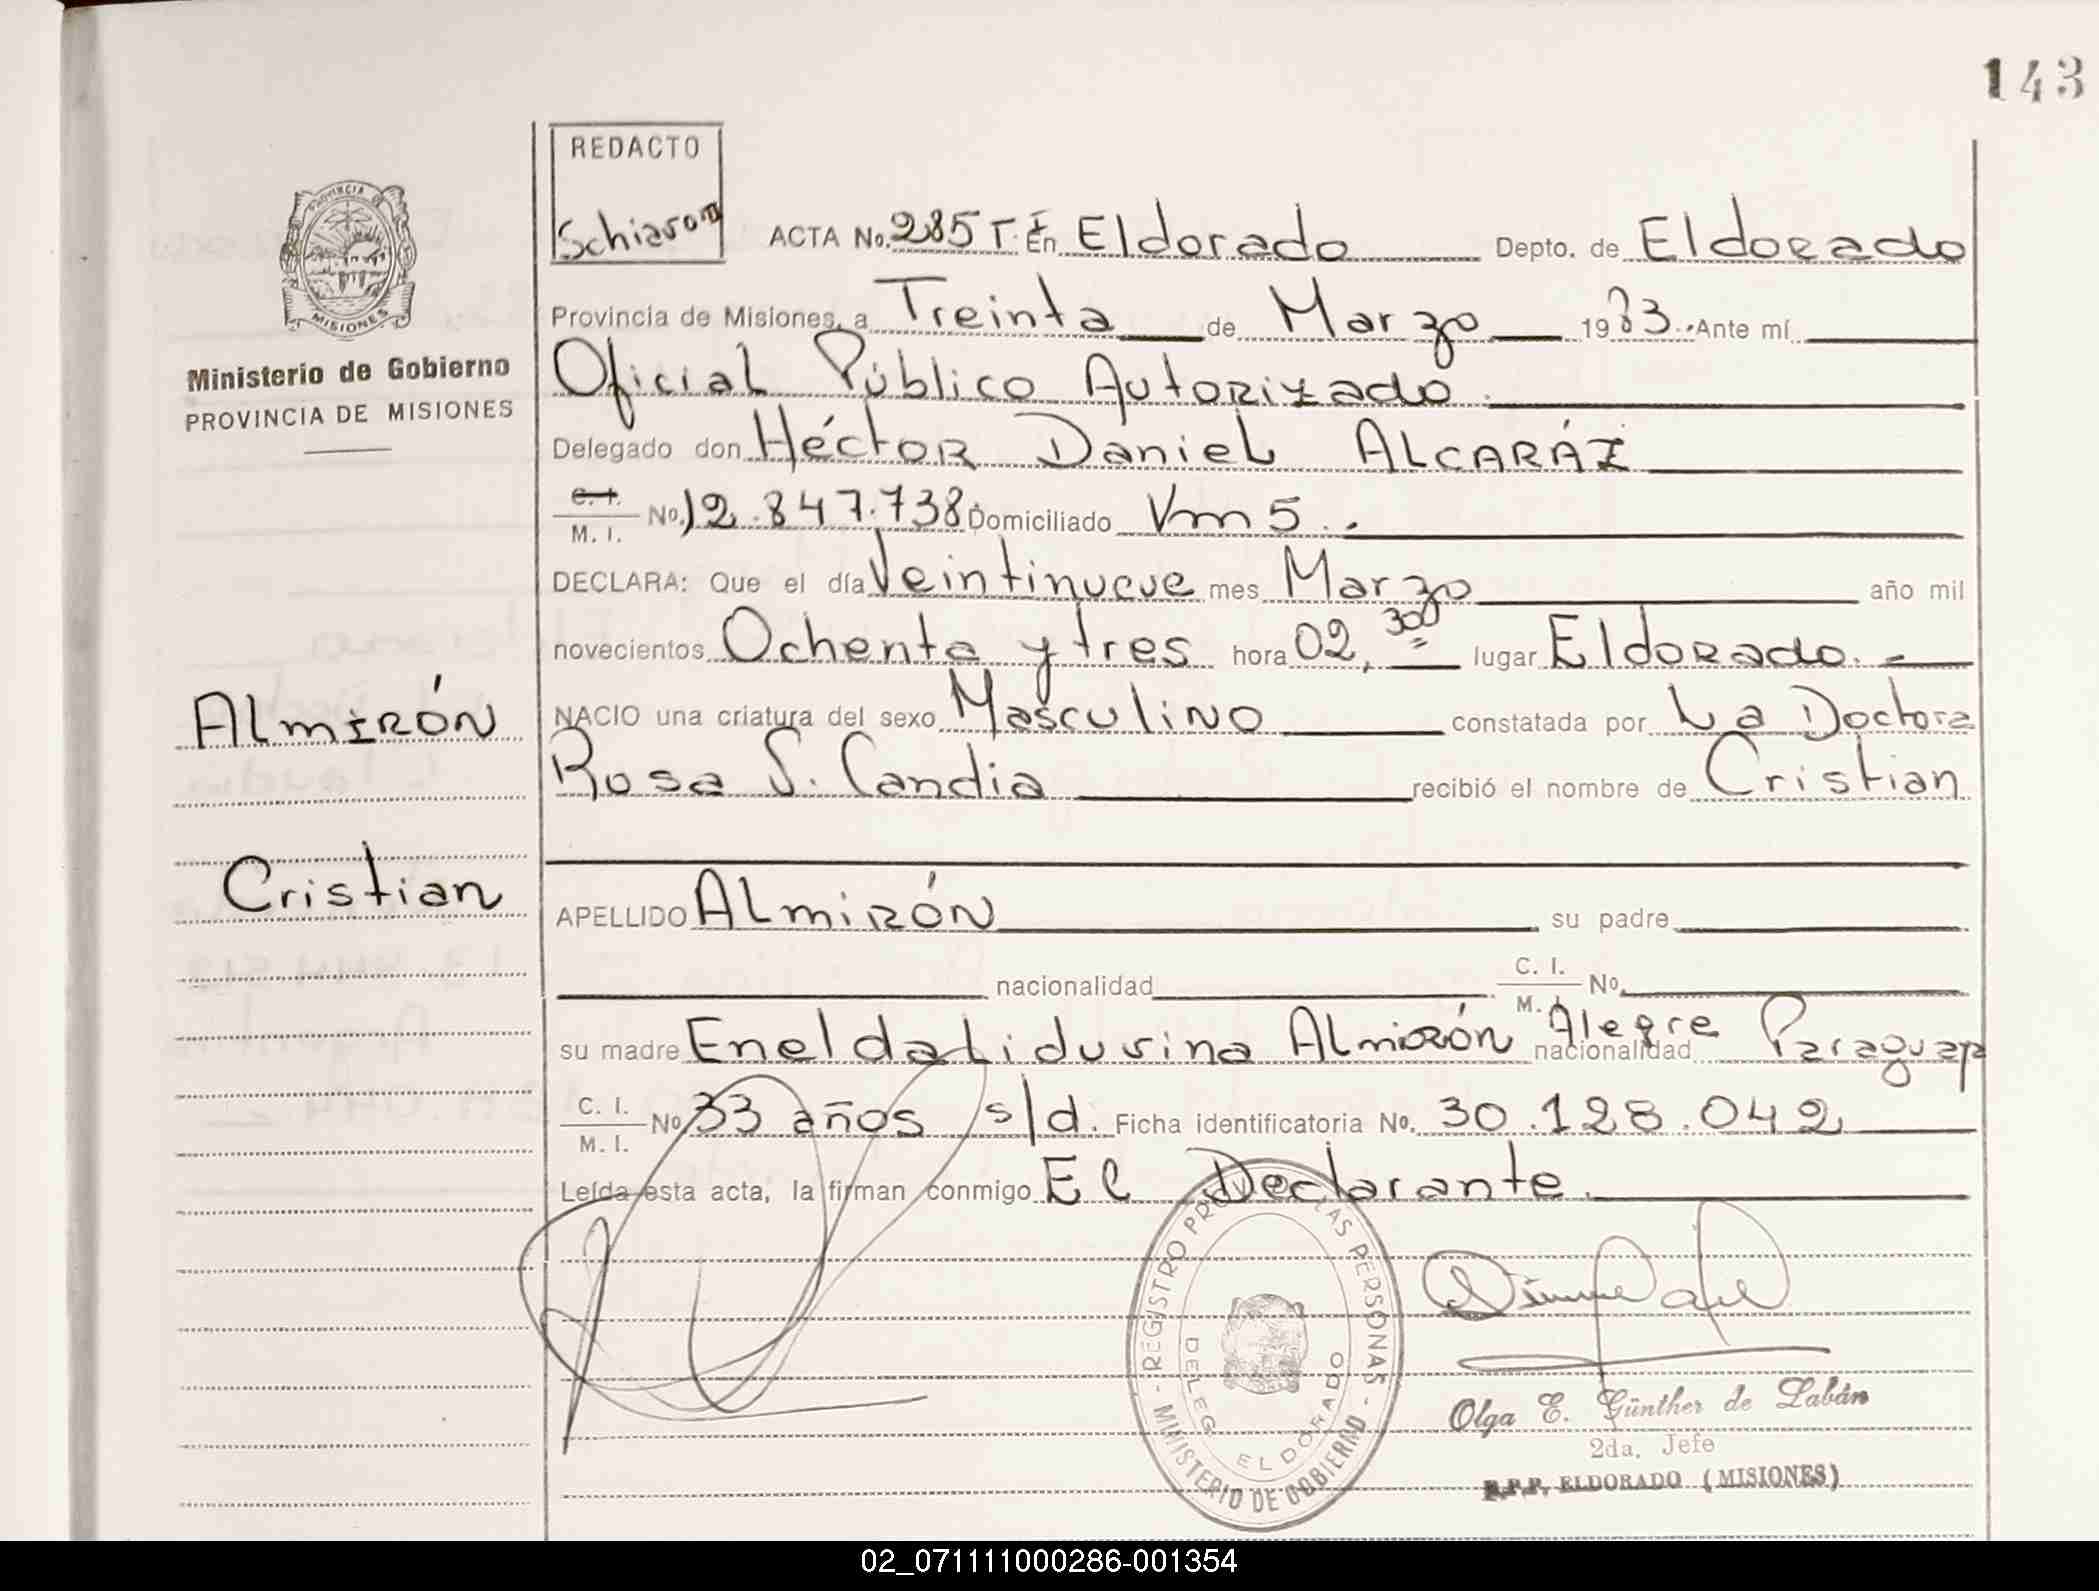 143
REDACTO
Schiavon
PROVINCIA
MISIONES
Ministerio de Gobierno
PROVINCIA DE MISIONES
ACTA No. 285 T. I En Eldorado Depto. de Eldorado
Provincia de Misiones, a Treinta de Marzo 1983. Ante mí
Oficial Público Autorizado.
Delegado don Héctor Daniel ALCARÁZ
C. I. M. I. No. 12.847.738 Domiciliado Km 5.
DECLARA: Que el día Veintinueve mes Marzo año mil
novecientos Ochenta y tres hora 02,30 lugar Eldorado.
Almirón
NACIO una criatura del sexo Masculino constatada por La Doctora
Rosa S. Candia recibió el nombre de Cristian
Cristian
APELLIDO Almirón su padre
nacionalidad C. I. M. I. No.
su madre Enelda Lidusina Almirón Alegre nacionalidad Paraguay
C. I. M. I. No. 33 años s/d. Ficha identificatoria No. 30.128.042
Leída esta acta, la firman conmigo El Declarante.
REGISTRO PRO LAS PERSONAS - MINISTERIO DE GOBIERNO -
DELEG. ELDORADO
Olga E. Günther de Labán
2da. Jefe
R.P.P. ELDORADO (MISIONES)
02_071111000286-001354